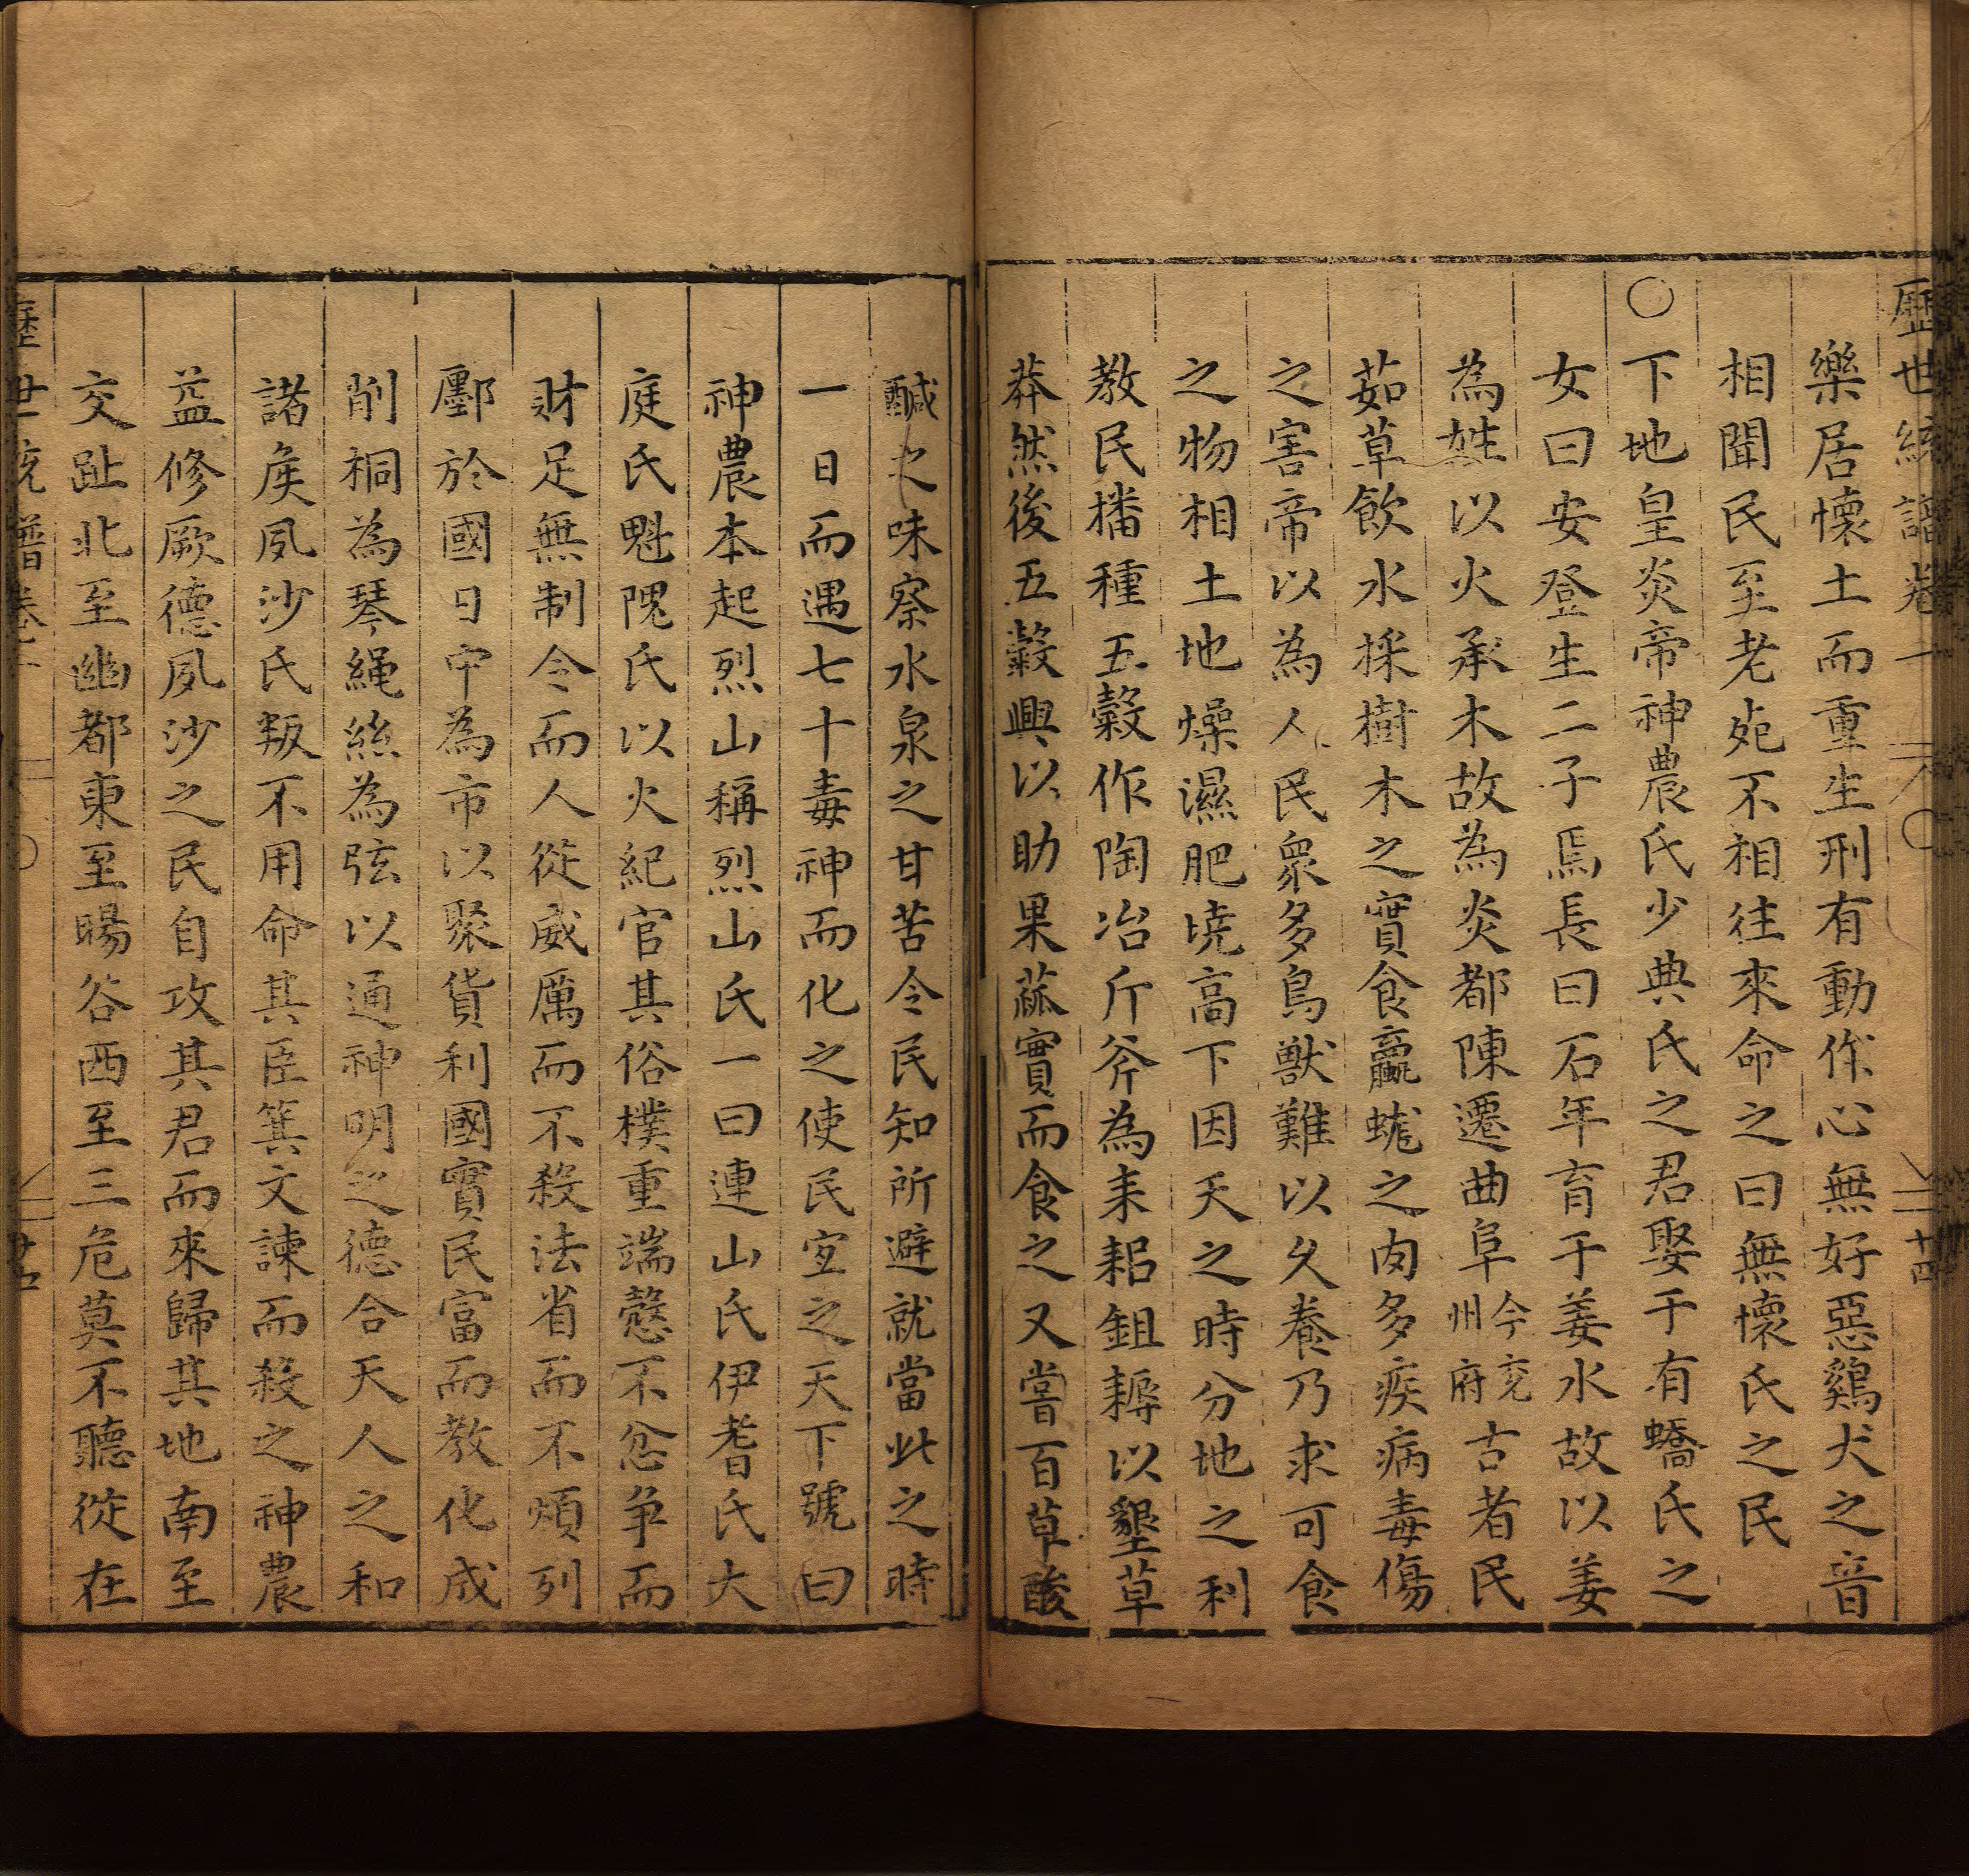 歷世統譜卷一
十四
樂居懷土而重生刑有動作心無好惡鷄犬之音
相聞民至老死不相往來命之曰無懷氏之民
○下地皇炎帝神農氏少典氏之君娶于有蟜氏之
女曰安登生二子焉長曰石年育于姜水故以姜
為姓以火承木故為炎都陳遷曲阜今兗州府古者民
茹草飲水採樹木之實食蠃蛖之肉多疾病毒傷
之害帝以為人民衆多鳥獸難以久養乃求可食
之物相土地燥濕肥墝高下因天之時分地之利
教民播種五糓作陶冶斤斧為耒耜鉏耨以墾草
莽然後五糓興以助果蓏實而食之又嘗百草酸
醎之味察水泉之甘苦令民知所避就當此之時
一日而遇七十毒神而化之使民宜之天下號曰
神農本起烈山稱烈山氏一曰連山氏伊耆氏大
庭氏魁隗氏以火紀官其俗樸重端慤不忿争而
財足無制令而人從威厲而不殺法省而不煩列
鄽於國日中為市以聚貨利國實民富而教化成
削桐為琴繩絲為弦以通神明之德合天人之和
諸侯夙沙氏叛不用命其臣箕文諫而殺之神農
益修厥德夙沙之民自攻其君而來歸其地南至
交趾北至幽都東至暘谷西至三危莫不聽從在
歷世統譜卷一